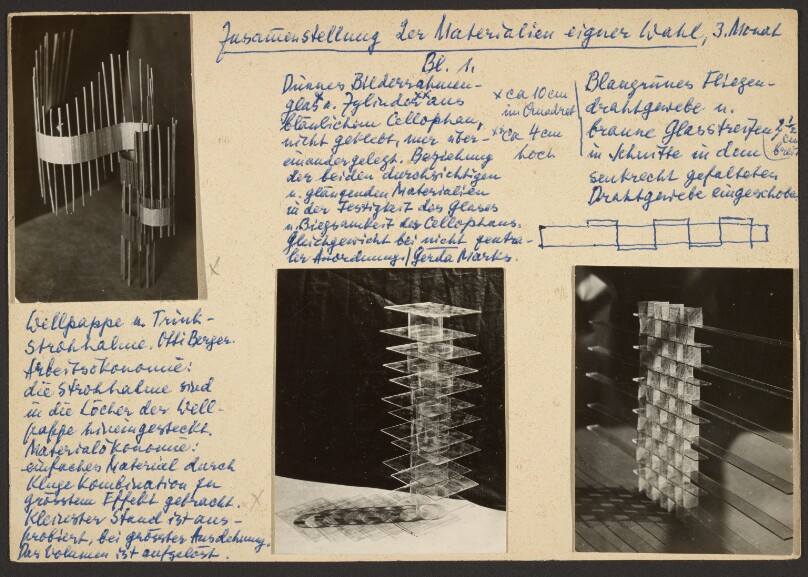 Zusammenstellung der Materialien eigner Wahl, 3. Monat
Bl. 1.
Dünnes Bilderrahmen-
glas x u. Zylinder xx aus
bläulichem Cellophan,
nicht geklebt, nur über-
einandergelegt. Beziehung
der beiden durchsichtigen
u. glänzenden Materialien
in der Festigkeit des Glases
u. Biegsamkeit des Cellophans.
Gleichgewicht bei nicht zentra-
ler Anordnung. / Gerda Marx.
x ca 10 cm
im Quadrat
xx ca 4 cm
hoch
Blaugrünes Fliegen-
drahtgewebe u.
braune Glasstreifen
2 1/2 cm breit
in Schnitte in dem
senkrecht gefalteten
Drahtgewebe eingeschoben
Wellpappe u. Trink-
strohhalme. Otti Berger.
Arbeitsökonomie:
die Strohhalme sind
in die Löcher der Well-
pappe hineingesteckt.
Materialökonomie:
einfaches Material durch
kluge Kombination zu
grösstem Effekt gebracht.
Kleinster Stand ist aus-
probiert, bei grösster Ausdehnung.
Das Volumen ist aufgelöst.